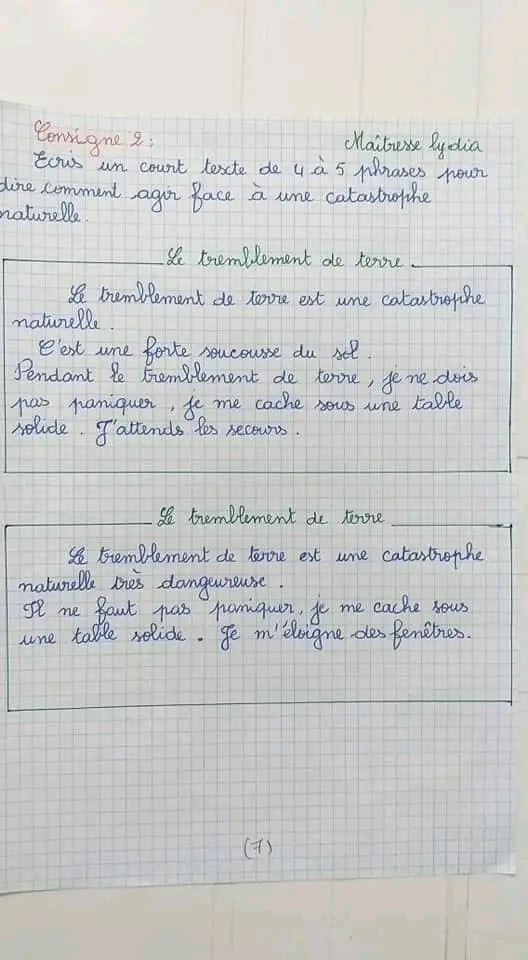 Consigne 2:
Maîtresse lydia
Ecris un court texte de 4 à 5 phrases pour
dire comment agir face à une catastrophe
naturelle.
Le tremblement de terre
Le tremblement de terre est une catastrophe
naturelle.
C'est une forte soucousse du sol.
Pendant le tremblement de terre, je ne dois
pas paniquer, je me cache sous une table
solide. J'attends les secours.
Le tremblement de terre
Le tremblement de terre est une catastrophe
naturelle très dangureuse.
Il ne faut pas paniquer, je me cache sous
une table solide. Je m'éloigne des fenêtres.
(7)